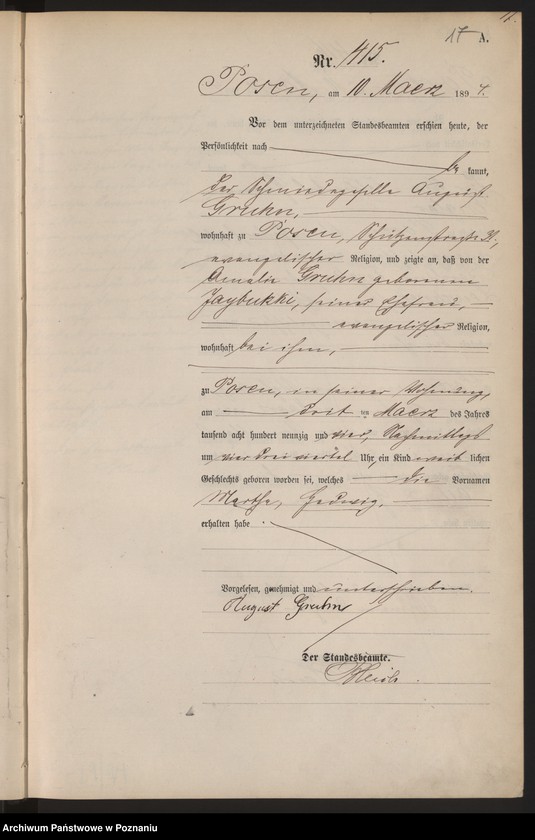 17
17 A.
Nr. 415.
Posen, am 10. Maerz 1894.
Vor dem unterzeichneten Standesbeamten erschien heute, der
Persönlichkeit nach
be kannt,
der Schmiedegeselle August
Gruhn,
wohnhaft zu Posen, Schützenstraße 31,
evangelischer Religion, und zeigte an, daß von der
Amalie Gruhn geborenen
seiner Ehefrau,
evangelischer Religion,
wohnhaft bei ihm,
zu Posen, in seiner Wohnung,
am ten Maerz des Jahres
tausend acht hundert neunzig und vier, Nachmittags
um vier drei viertel Uhr, ein Kind weib lichen
Geschlechts geboren worden sei, welches die Vornamen
Martha, Hedwig,
erhalten habe.
Vorgelesen, genehmigt und unterschrieben.
August Gruhn
Der Standesbeamte.
Archiwum Państwowe w Poznaniu